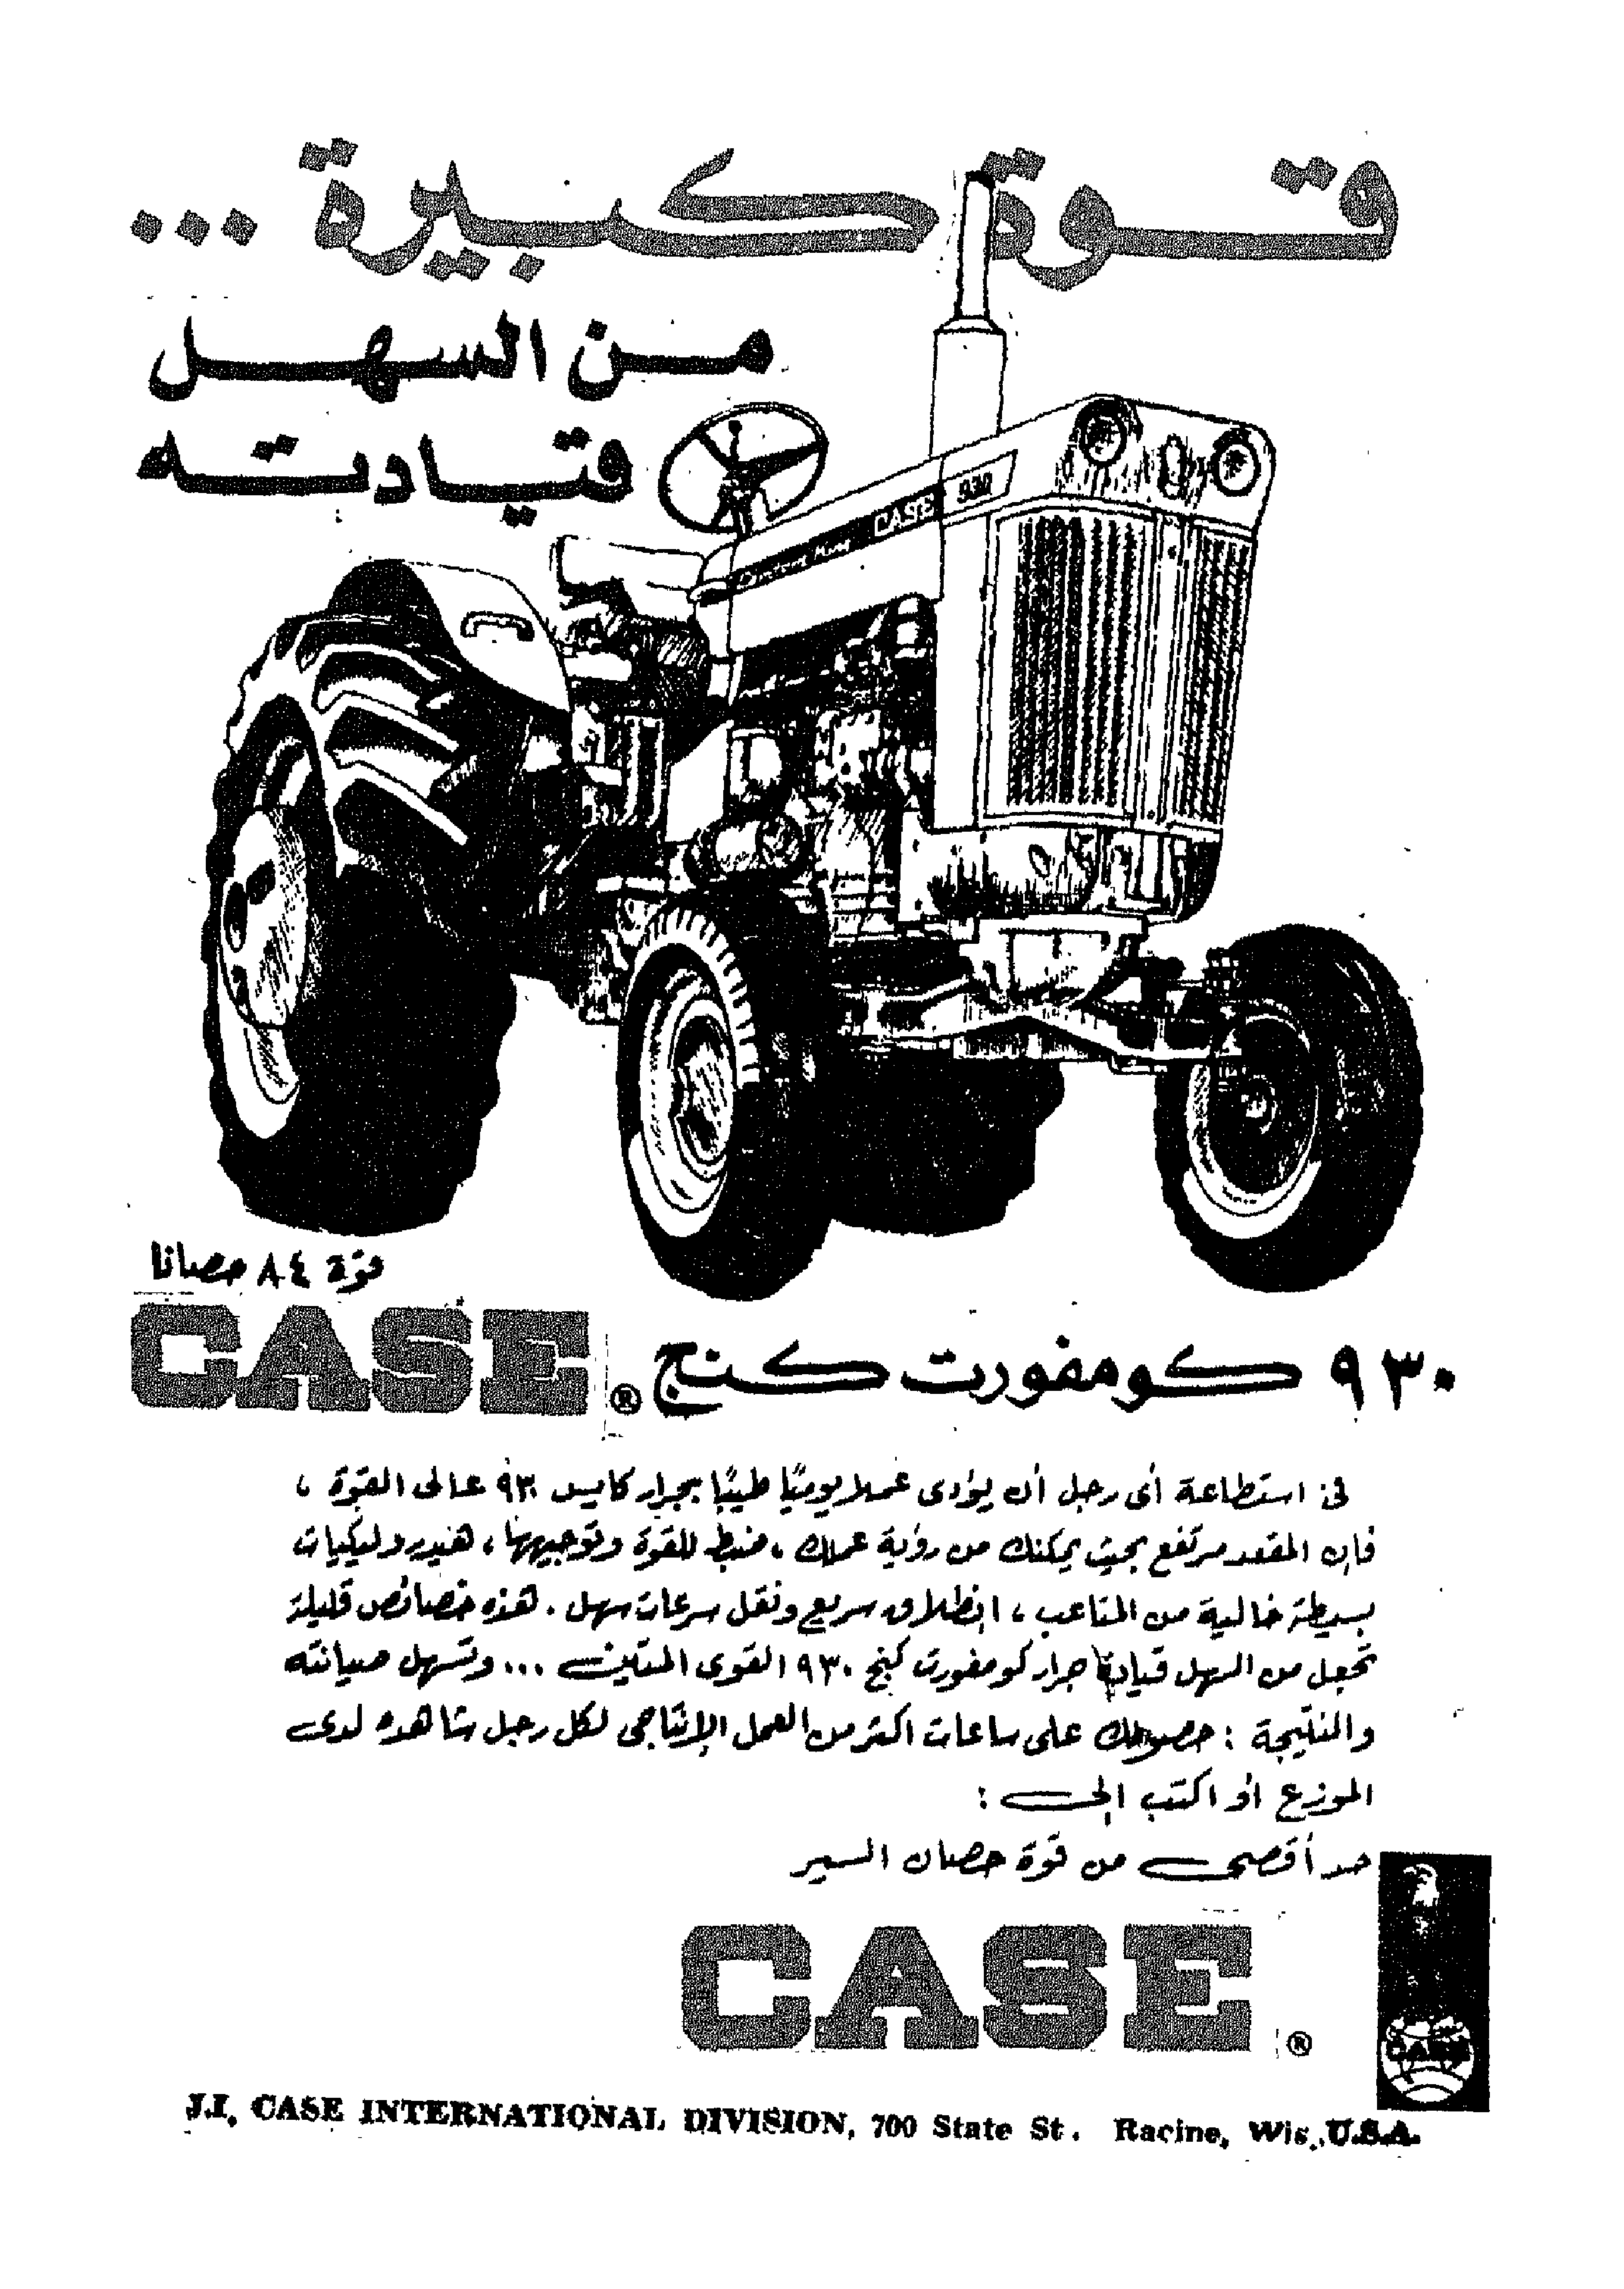 قوة كبيرة ...
من السهل
قيادته
Comfort King CASE 930
قوة ٨٤ حصانا
٩٣٠ كومفورت كنج ® CASE
فى استطاعة أى رجل أن يؤدى عملا يوميًا طيبًا بجرار كايس ٩٣٠ عالى القوة ،
فإن المقعد مرتفع بحيث يمكنك من رؤية عملك ، ضبط للقوة وتوجيهها ، هيدروليكيات
بسيطة خالية من المتاعب ، انطلاق سريع ونقل سرعات سهل . هذه خصائص قليلة
تجعل من السهل قيادة جرار كومفورت كنج ٩٣٠ القوى المتين ... وتسهل صيانته
والنتيجة : حصولك على ساعات اكثر من العمل الإنتاجى لكل رجل شاهده لدى
الموزع أو اكتب إلى :
حد أقصى من قوة حصان السير
CASE ®
CASE
J.I. CASE INTERNATIONAL DIVISION, 700 State St. Racine, Wis. U.S.A.